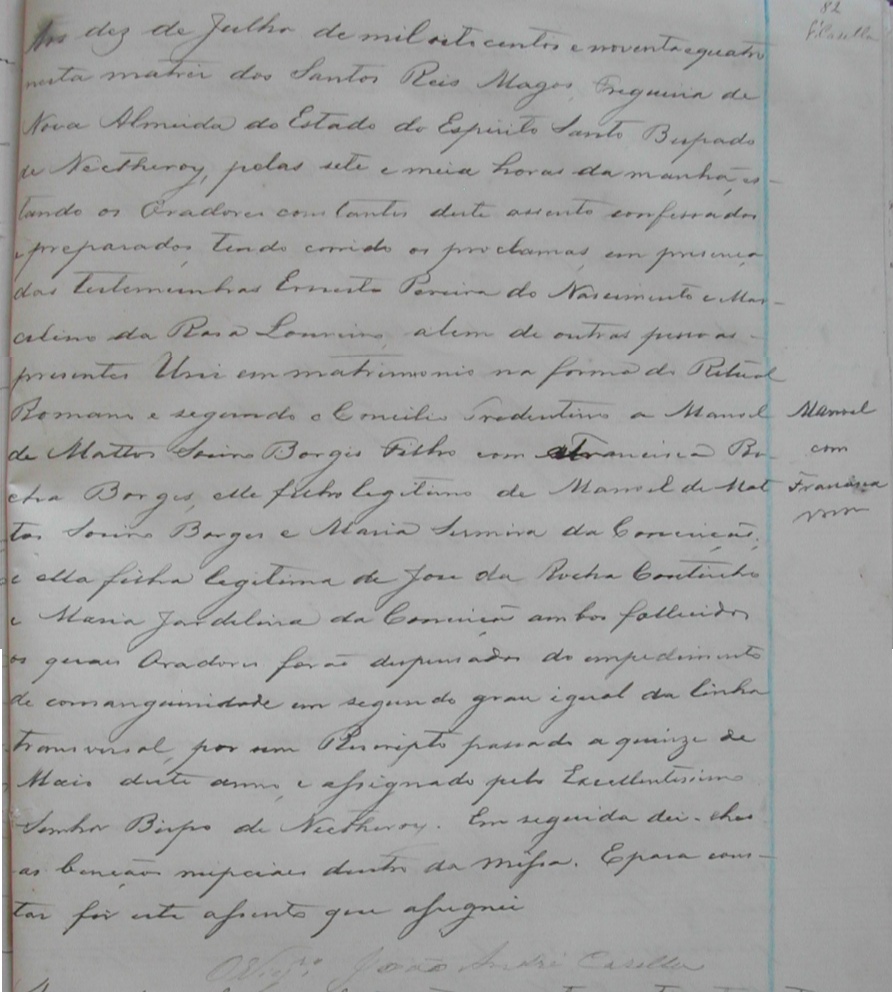 82
Aos dez de Julho de mil oito centos e noventa e quatro
nesta matriz dos Santos Reis Magos, Freguezia de
Nova Almeida do Estado do Espirito Santo Bispado
de Nictheroy, pelas sete e meia horas da manhã, es-
tando os Oradores constantes deste assento confessados
e preparados, tendo corrido os proclamas, em presença
das testemunhas Ernesto Pereira do Nascimento e Mar-
celino da Rosa Loureiro, alem de outras pessoas
presentes Uni em matrimonio na forma do Ritual
Romano e segundo o Concilio Tredentino a Manoel
de Mattos Borges Filho com Francisca Ro-
cha Borges, elle filho legitimo de Manoel de Mat
tos Borges e Maria da Conceição,
e ella filha legitima de Jose da Rocha Coutinho
e Maria Jardelina da Conceição ambos fallecidos
os quaes Oradores forão dispensados do impedimento
de consanguinidade em segundo grau igual da linha
transversal, por um Rescripto passado a quinze de
Maio deste anno, e assignado pelo Excellentissimo
Senhor Bispo de Nictheroy. Em seguida dei-lhes
as bençãos nupciaes dentro da Missa. E para cons-
tar fiz este assento que assignei
O Vigrº João André Casella
Manoel
com
Francisca